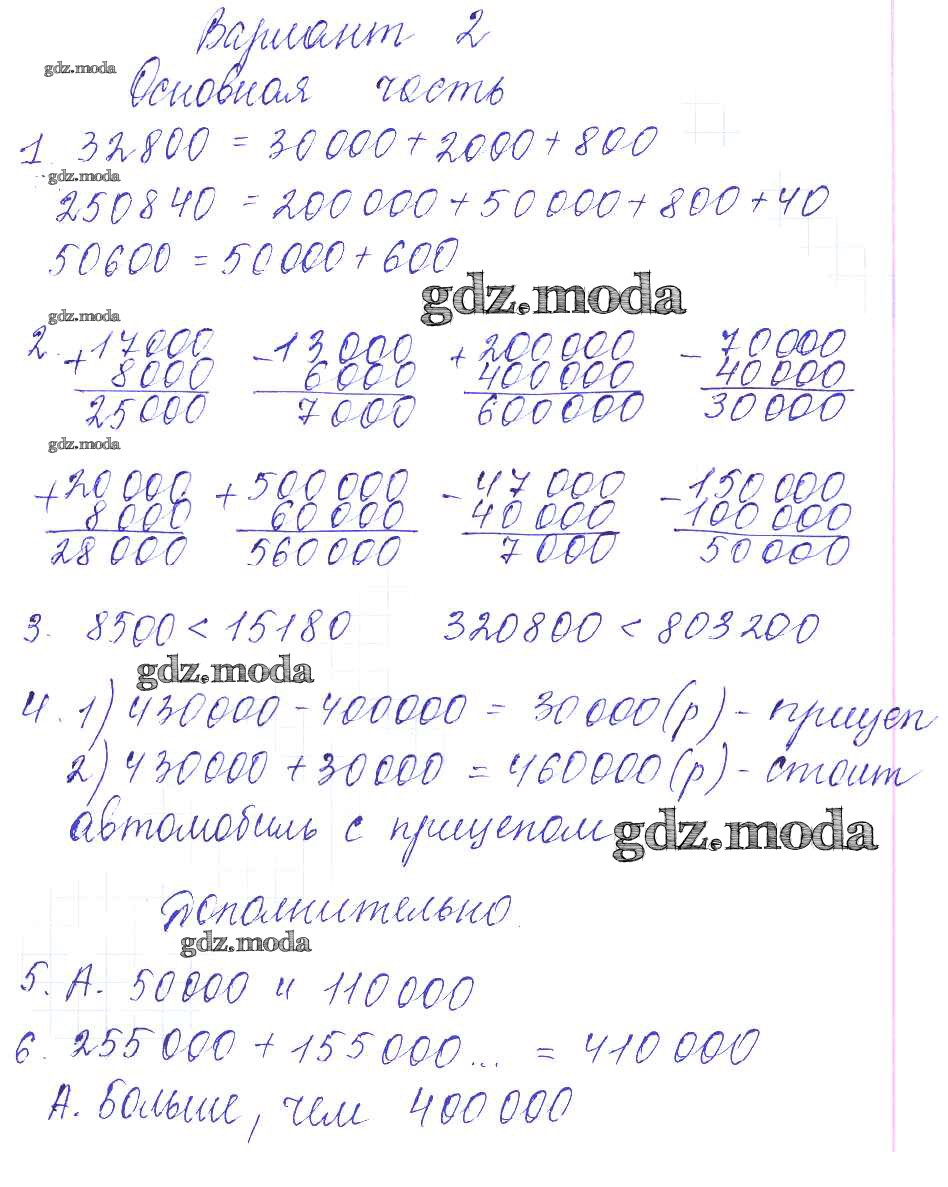 Вариант 2
gdz.moda
Основная часть
1. 32800 = 30000 + 2000 + 800
gdz.moda
250840 = 200000 + 50000 + 800 + 40
50600 = 50000 + 600
gdz.moda
gdz.moda
2. + 17000 - 13000 + 200000 - 70000
8000 6000 400000 40000
25000 7000 600000 30000
gdz.moda
+ 20000 + 500000 - 47000 - 150000
8000 60000 40000 100000
28000 560000 7000 50000
3. 8500 < 15180 320800 < 803200
gdz.moda
4. 1) 430000 - 400000 = 30000 (р) - прицеп
2) 430000 + 30000 = 460000 (р) - стоит
автомобиль с прицепом
gdz.moda
Дополнительно
gdz.moda
5. А. 50000 и 110000
6. 255000 + 155000... = 410000
А. Больше, чем 400000